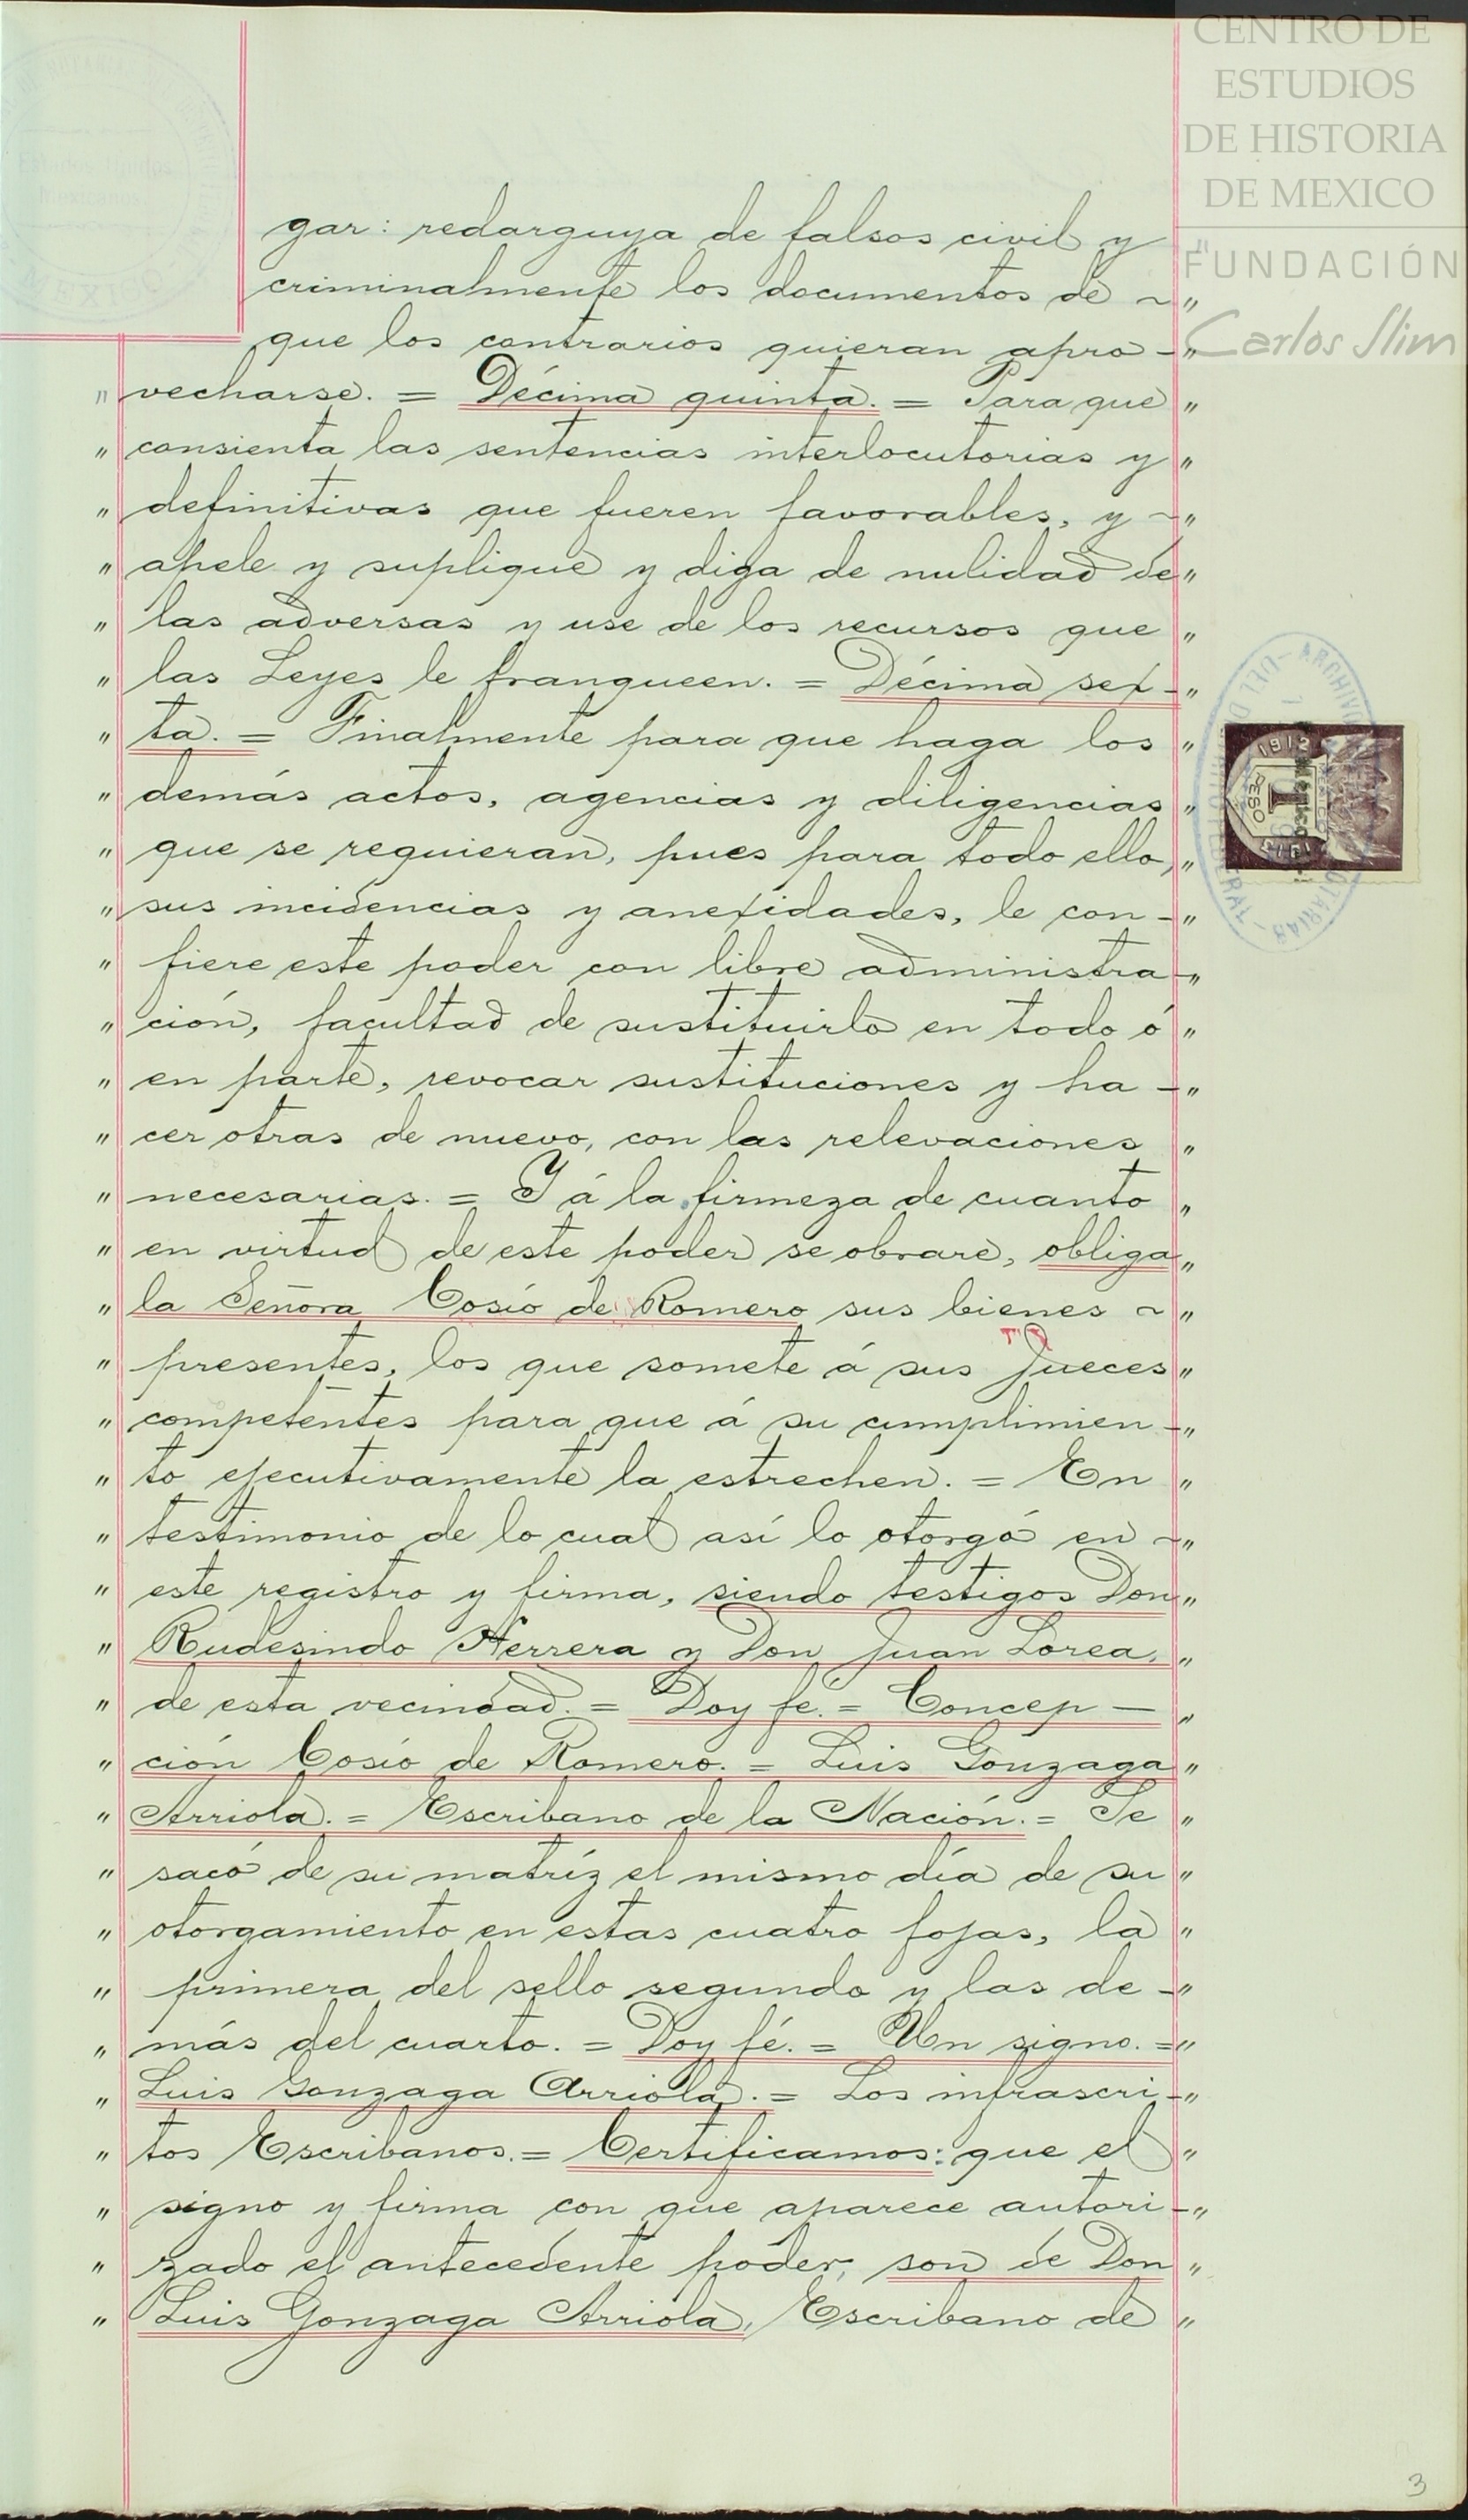 CENTRO DE
ESTUDIOS
DE HISTORIA
DE MEXICO
FUNDACIÓN
Carlos Slim
gar: redarguya de falsos civil y "
criminalmente los documentos de ~ "
que los contrarios quieran apro - "
" vecharse. = Décima quinta. = Para que "
" consienta las sentencias interlocutorias y "
" definitivas que fueren favorables, y ~ "
" apele y suplique y diga de nulidad de "
" las adversas y use de los recursos que "
" las Leyes le franqueen. = Décima sex - "
" ta. = Finalmente para que haga los "
" demás actos, agencias y diligencias "
" que se requieran, pues para todo ello, "
" sus incidencias y anexidades, le con - "
" fiere este poder con libre administra - "
" ción, facultad de sustituirlo en todo ó "
" en parte, revocar sustituciones y ha - "
" cer otras de nuevo, con las relevaciones "
" necesarias. = Y á la firmeza de cuanto "
" en virtud de este poder se obrare, obliga "
" la Señora Cosío de Romero sus bienes ~ "
" presentes, los que somete á sus Jueces "
" competentes para que á su cumplimien - "
" to ejecutivamente la estrechen. = En "
" testimonio de lo cual así lo otorgó en ~ "
" este registro y firma, siendo testigos Don "
" Rudesindo Herrera y Don Juan Lorea, "
" de esta vecindad. = Doy fe. = Concep — "
" ción Cosío de Romero. = Luis Gonzaga "
" Arriola. = Escribano de la Nación. = Se "
" sacó de su matríz el mismo día de su "
" otorgamiento en estas cuatro fojas, la "
" primera del sello segundo y las de - "
" más del cuarto. = Doy fé. = Un signo. = "
" Luis Gonzaga Arriola. = Los infrascri - "
" tos Escribanos. = Certificamos: que el "
" signo y firma con que aparece autori - "
" zado el antecedente poder, son de Don "
" Luis Gonzaga Arriola, Escribano de "
1912
1
PESO
1913
3